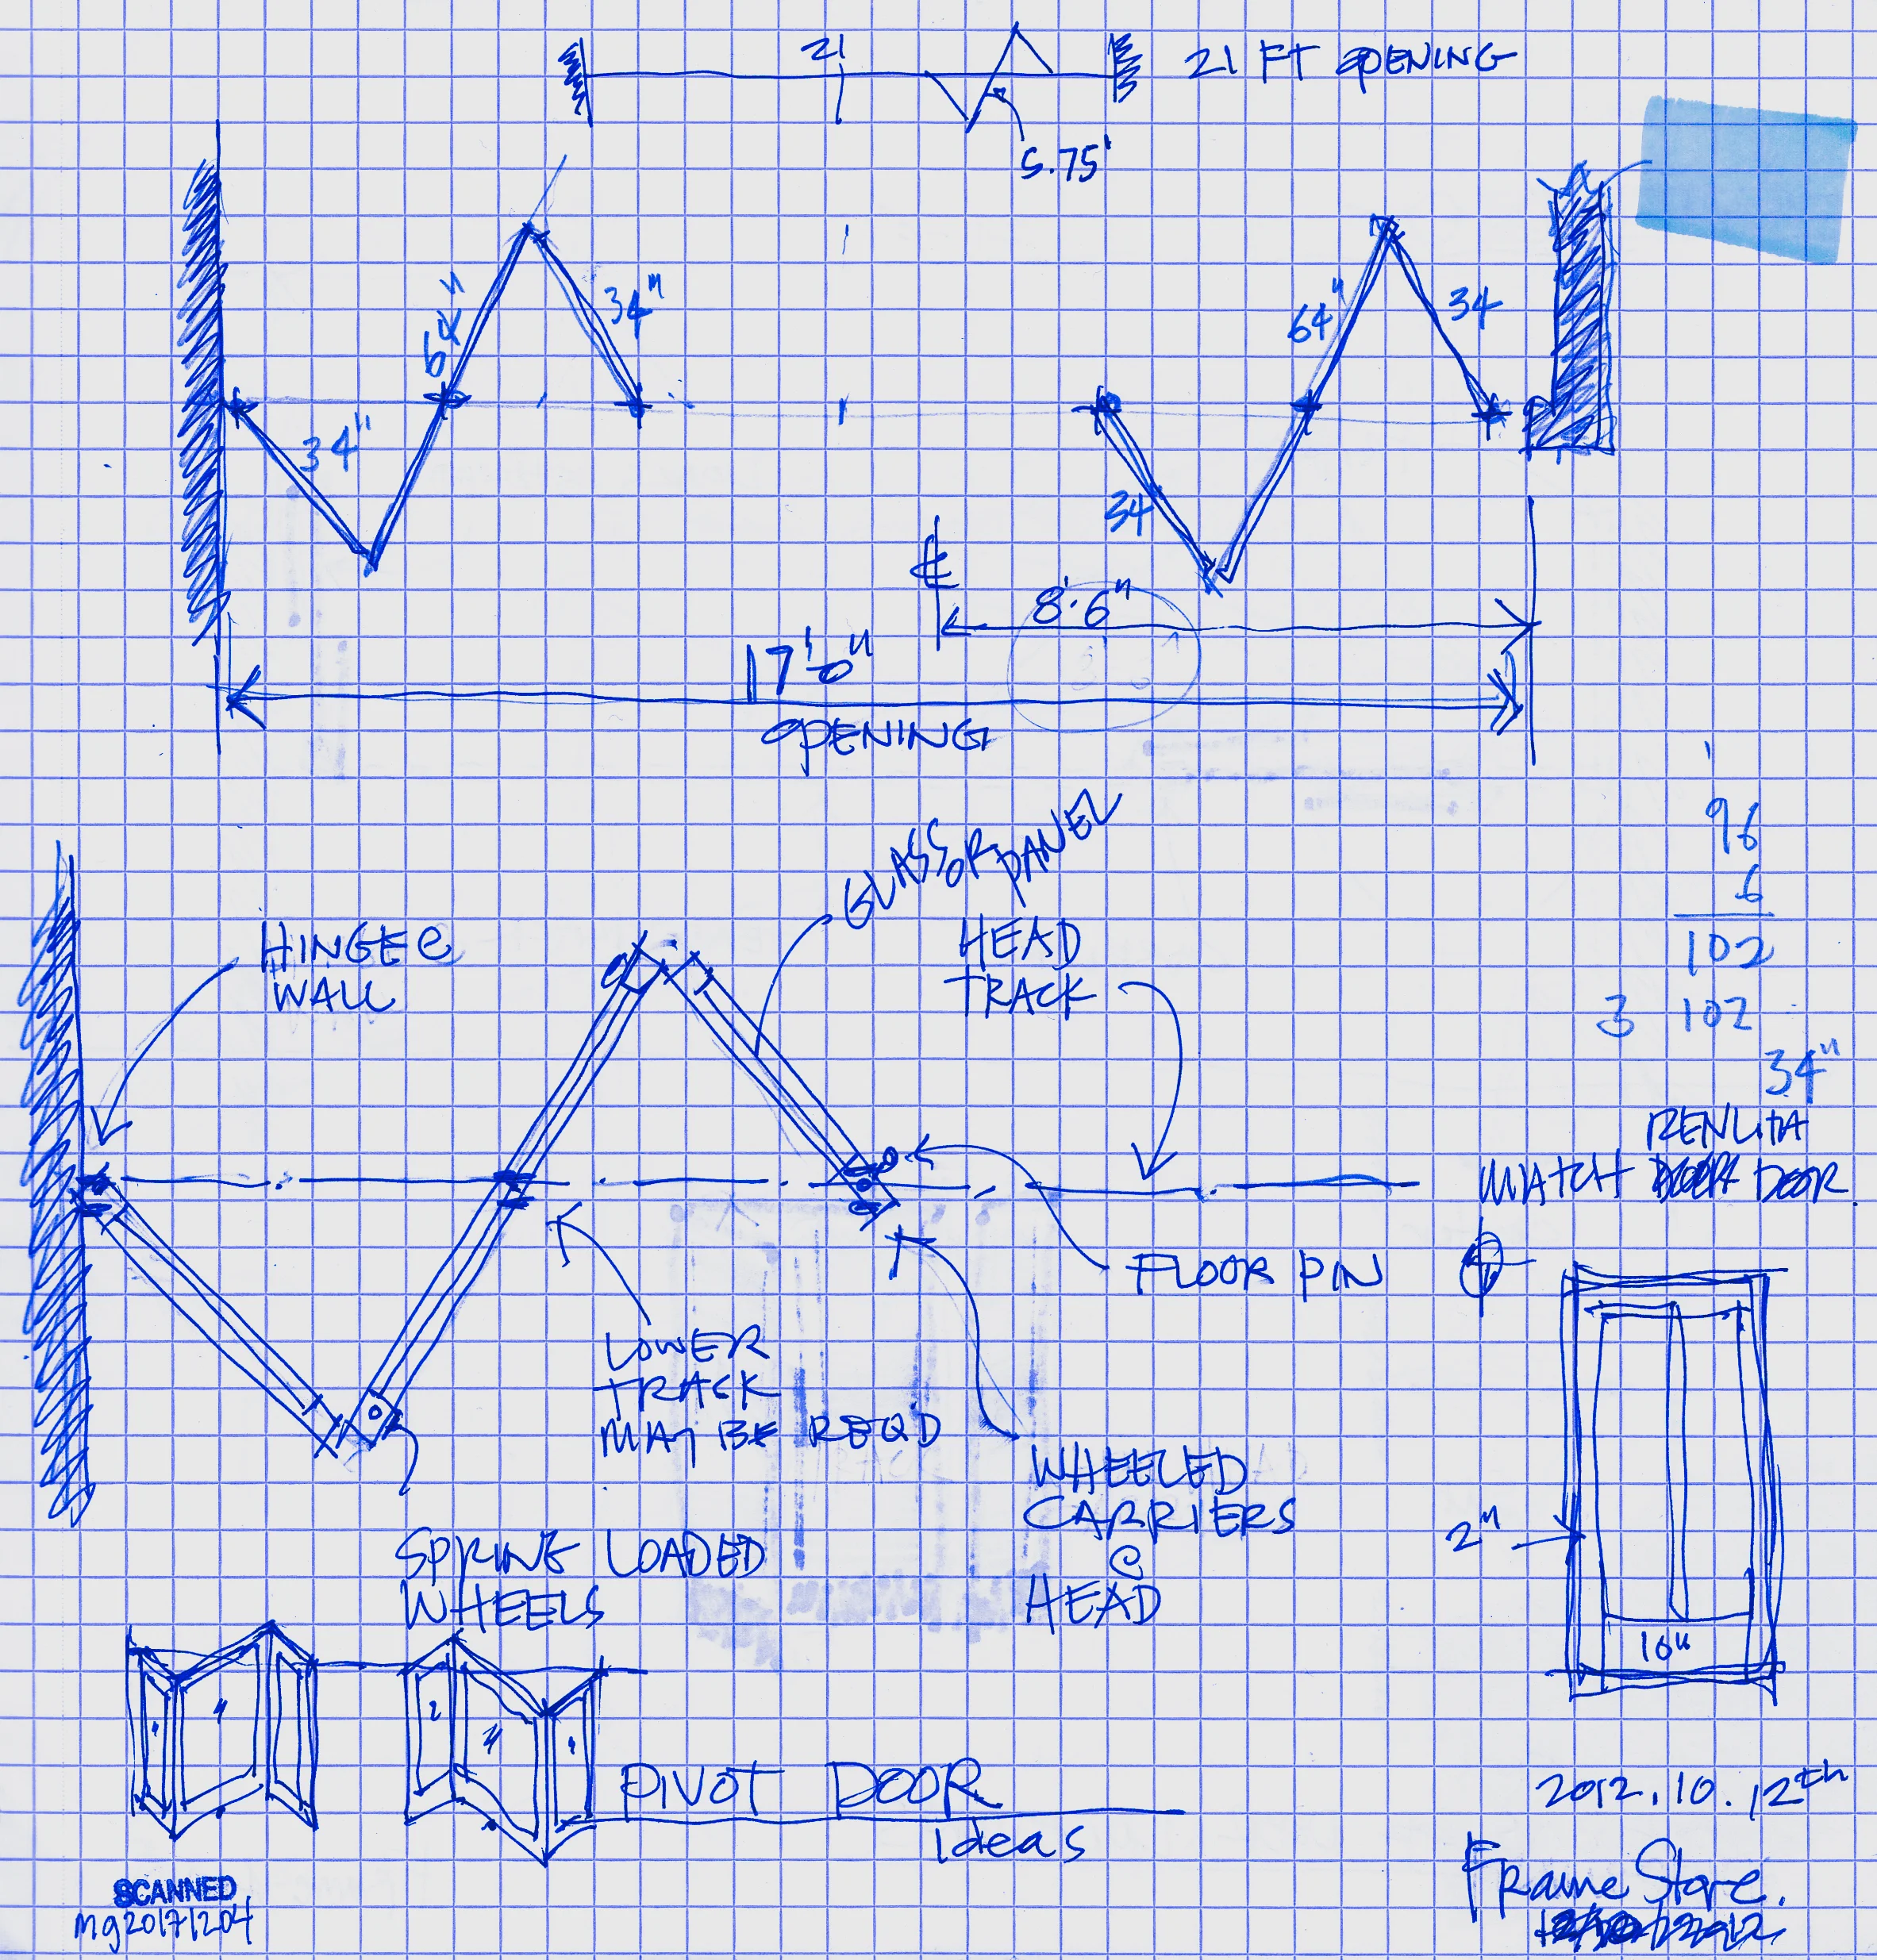 21
21 FT OPENING
5.75'
64"
34"
34"
64"
34
34
℄
8'.6"
17'-0"
OPENING
GLASS OR PANEL
96
6
102
3 102
34"
HINGE @
WALL
HEAD
TRACK
RENLITA
MATCH DOOR
FLOOR PIN
LOWER
TRACK
MAY BE REQD
WHEELED
CARRIERS
@
HEAD
2"
10"
SPRING LOADED
WHEELS
PIVOT DOOR
Ideas
2012.10.12th
Frame Store.
SCANNED
mg20171204